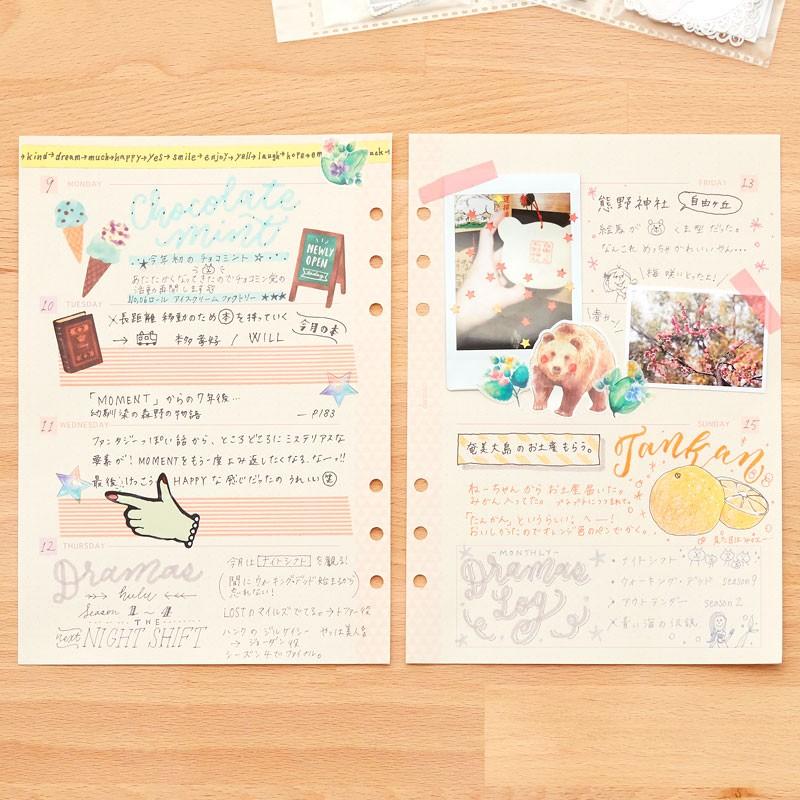 kind→dream→much→happy→yes→smile→enjoy→yell→laugh→hope→
9 MONDAY
Chocolate
mint
今年初の チョコミント
あたたかくなってきたのでチョコミン党の
活動の再開します
No.06ロール アイスクリーム ファクトリー ★★★
NEWLY
OPEN
10 TUESDAY
×長距離 移動のため 本 を持っていく
今月の本
本多孝好 / WILL
「MOMENT」からの7年後…
幼馴染の森野の物語 — P183
11 WEDNESDAY
ファンタジーっぽい話から、ところどころに ミステリアスな
要素が! MOMENTをもう一度よみ返したくなる、なーっ!!
最後 けっこう HAPPY な感じだったの うれしい 笑
12 THURSDAY
Dramas
hulu
Season 1~4
next THE
NIGHT SHIFT
今月は ナイトシフト を観る!
間に ウォーキング・デッド 始まるから
忘れない!
LOSTの マイルズでてる→トファー役
ハンクの ジルケイシー やっぱ美人
→ ジョーダン役
シーズン4でファイナル。
FRIDAY 13
熊野神社
自由ヶ丘
絵馬が くま型だった。
なんこれ めっちゃかわいいやん…
梅 咲いとったよ!
SUNDAY 15
奄美大島のお土産もらう。
Tankan
ねーちゃんから お土産届いた。
みかん入ってた。
「たんかん」というらしい! へー!
おいしかったのでオレンジ色のペンでかく。
MONTHLY
Dramas
Log
・ナイトシフト
・ウォーキング・デッド season9
・アウトランダー season 2
×青い海の伝説